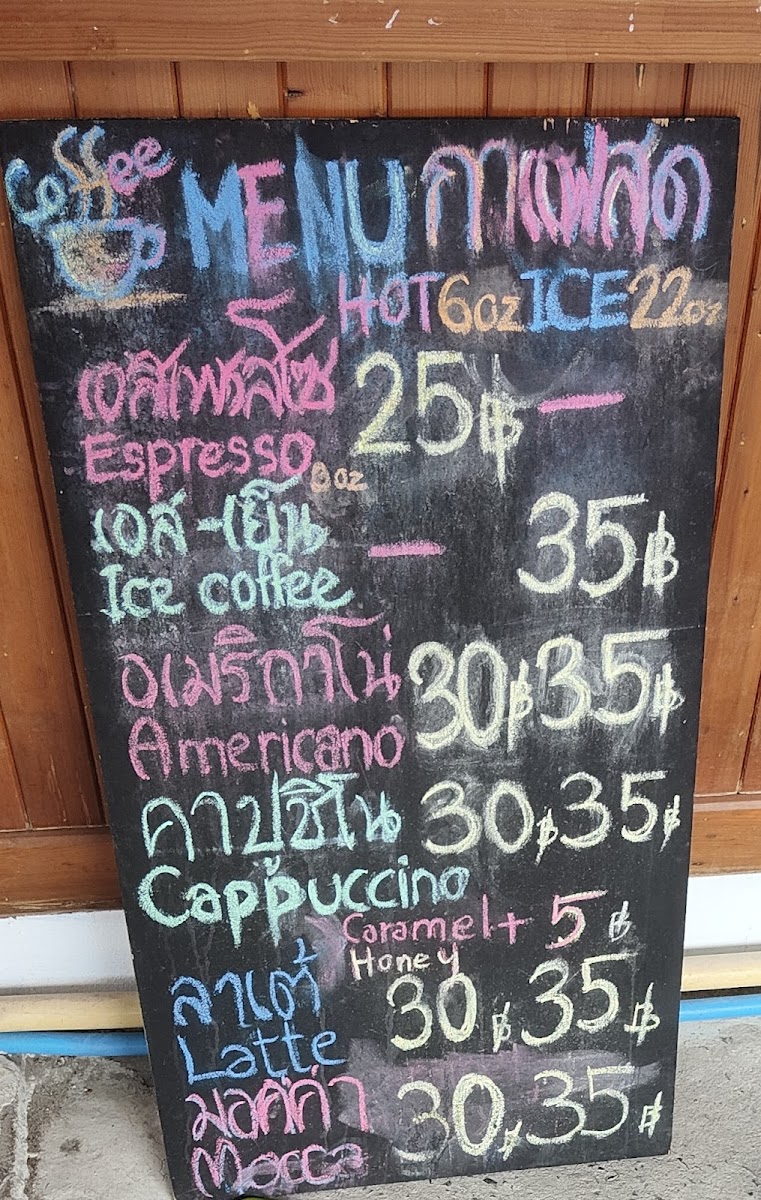 Coffee MENU กาแฟสด
HOT 6oz ICE 22oz
เอสเพรสโซ 25฿ —
Espresso 8oz
เอส-เย็น — 35฿
Ice coffee
อเมริกาโน่ 30฿ 35฿
Americano
คาปูชิโน 30฿ 35฿
Cappuccino
Caramel + 5฿
Honey
ลาเต้ 30฿ 35฿
Latte
มอคค่า 30฿ 35฿
Mocca